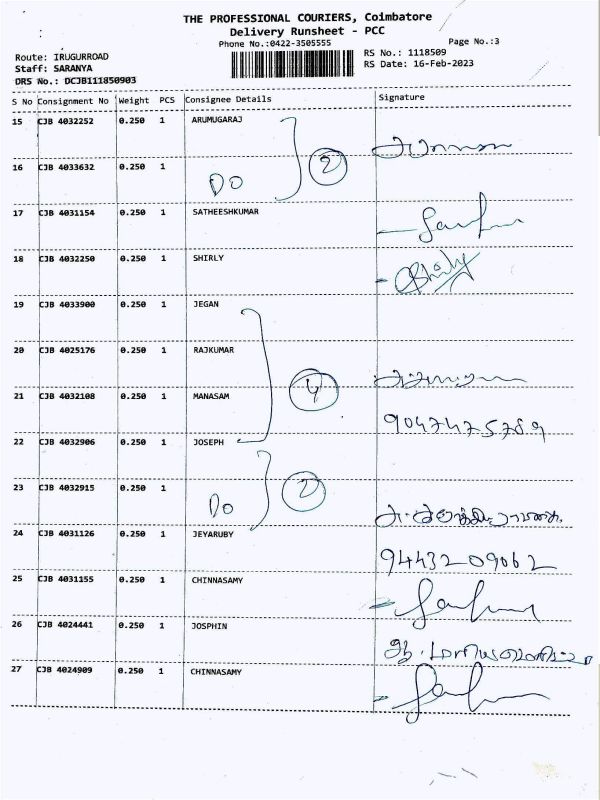 THE PROFESSIONAL COURIERS, Coimbatore
Delivery Runsheet - PCC
Phone No.:0422-3505555
Page No.:3
Route: IRUGURROAD
RS No.: 1118509
Staff: SARANYA
RS Date: 16-Feb-2023
DRS No.: DCJB111850903
S No Consignment No Weight PCS Consignee Details Signature
15 CJB 4032252 0.250 1 ARUMUGARAJ
2
16 CJB 4033632 0.250 1 DO
17 CJB 4031154 0.250 1 SATHEESHKUMAR
18 CJB 4032250 0.250 1 SHIRLY Shirly
19 CJB 4033900 0.250 1 JEGAN
20 CJB 4025176 0.250 1 RAJKUMAR
4
21 CJB 4032108 0.250 1 MANASAM
9047475789
22 CJB 4032906 0.250 1 JOSEPH
2
23 CJB 4032915 0.250 1 DO
24 CJB 4031126 0.250 1 JEYARUBY
9443209062
25 CJB 4031155 0.250 1 CHINNASAMY
26 CJB 4024441 0.250 1 JOSPHIN
27 CJB 4024909 0.250 1 CHINNASAMY